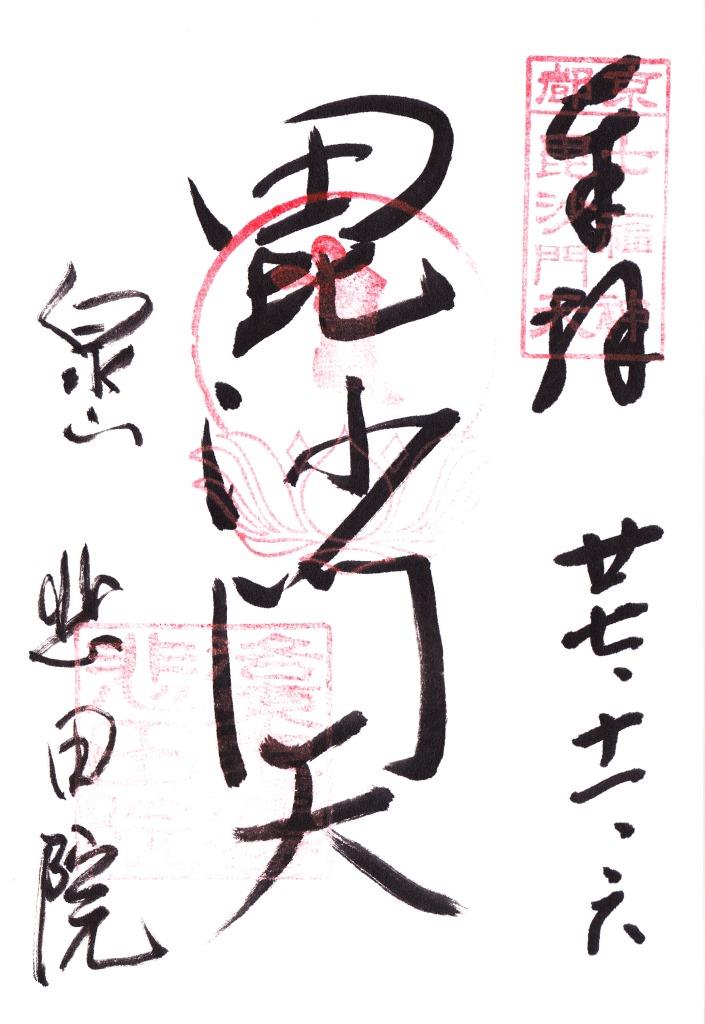 奉拝 廿七、十一、六
京都七福神
毘沙門天
毘沙門天
泉山 悲田院
悲田院